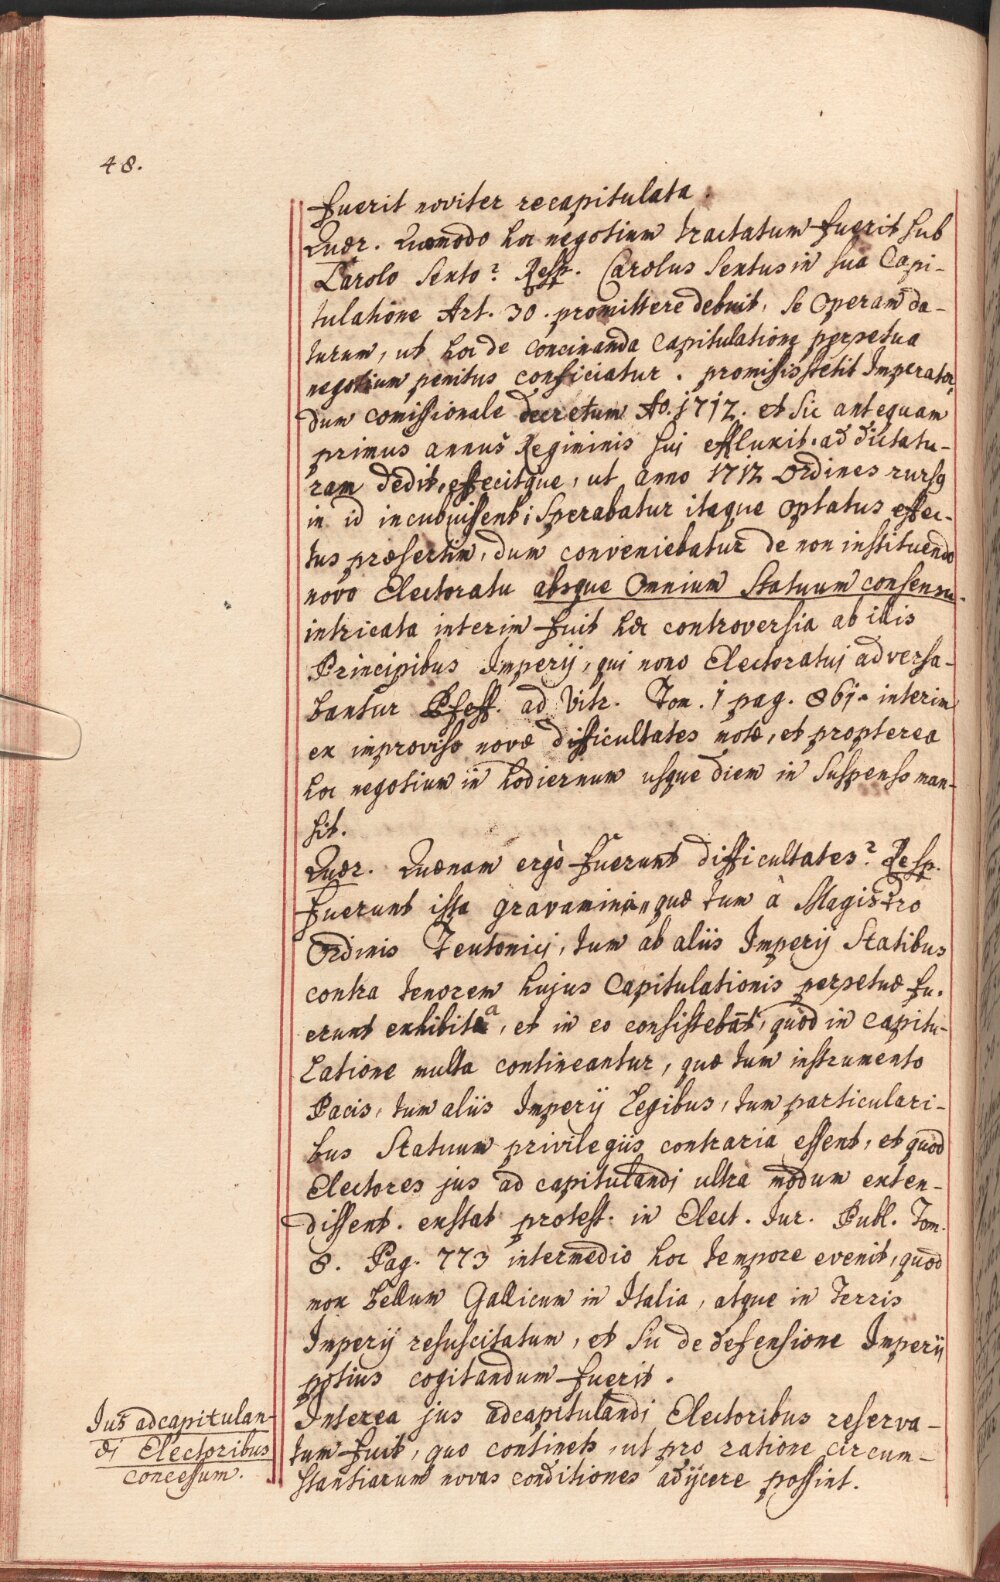 48.
fuerit noviter recapitulata.
Quær. Quomodo hoc negotium tractatum fuerit sub
Carolo Sexto? Resp. Carolus Sextus in sua Capi-
tulatione Art. 30. promittere debuit, se operam da-
turum, ut hoc de concinanda Capitulatione perpetua
negotium penitus conficiatur. promisis stetit Imperator,
dum comissionale decretum Ao. 1712. et sic antequam
primus annus Regiminis sui effluxit. ad dictatu-
ram dedit, effecitque, ut anno 1712 Ordines rursq
in id incubuissent; Sperabatur itaque optatus effec-
tus præsertim, dum conveniebatur de non instituendo
novo Electoratu absque Omnium Statuum consensu.
intricata interim fuit hæc controversia ab illis
Principibus Imperij, qui nono Electoratui adversa-
bantur Pfeff. ad Vitr. Tom. 1 pag. 861. interim
ex improviso novæ difficultates notæ, et propterea
hoc negotium in hodiernum usque diem in suspenso man-
sit.
Quær. Quænam ergò fuerunt difficultates? Resp.
fuerunt ista gravamina, quæ tum à Magistro
Ordinis Teutonici, tum ab aliis Imperij Statibus
contra tenorem hujus Capitulationis perpetuæ fu-
erunt exhibita, et in eo consistebāt, quòd in Capitu-
latione multa contineantur, quæ tum instrumento
Pacis, tum aliis Imperij Legibus, tum particulari-
bus Statuum privilegiis contraria essent, et quod
Electores jus ad capitulandi ultra modum exten-
dissent. exstat protest. in Elect. Jur. Publ. Tom.
8. Pag. 773 intermedio hoc tempore evenit, quod
mox bellum Gallicum in Italia, atque in Terris
Imperij resuscitatum, et sic de defensione Imperij
potius cogitandum fuerit.
Jus adcapitulan-
di Electoribus
concessum.
Interea jus adcapitulandi Electoribus reserva-
tum fuit, quo continetr, ut pro ratione circum-
stantiarum novas conditiones adijcere possint.